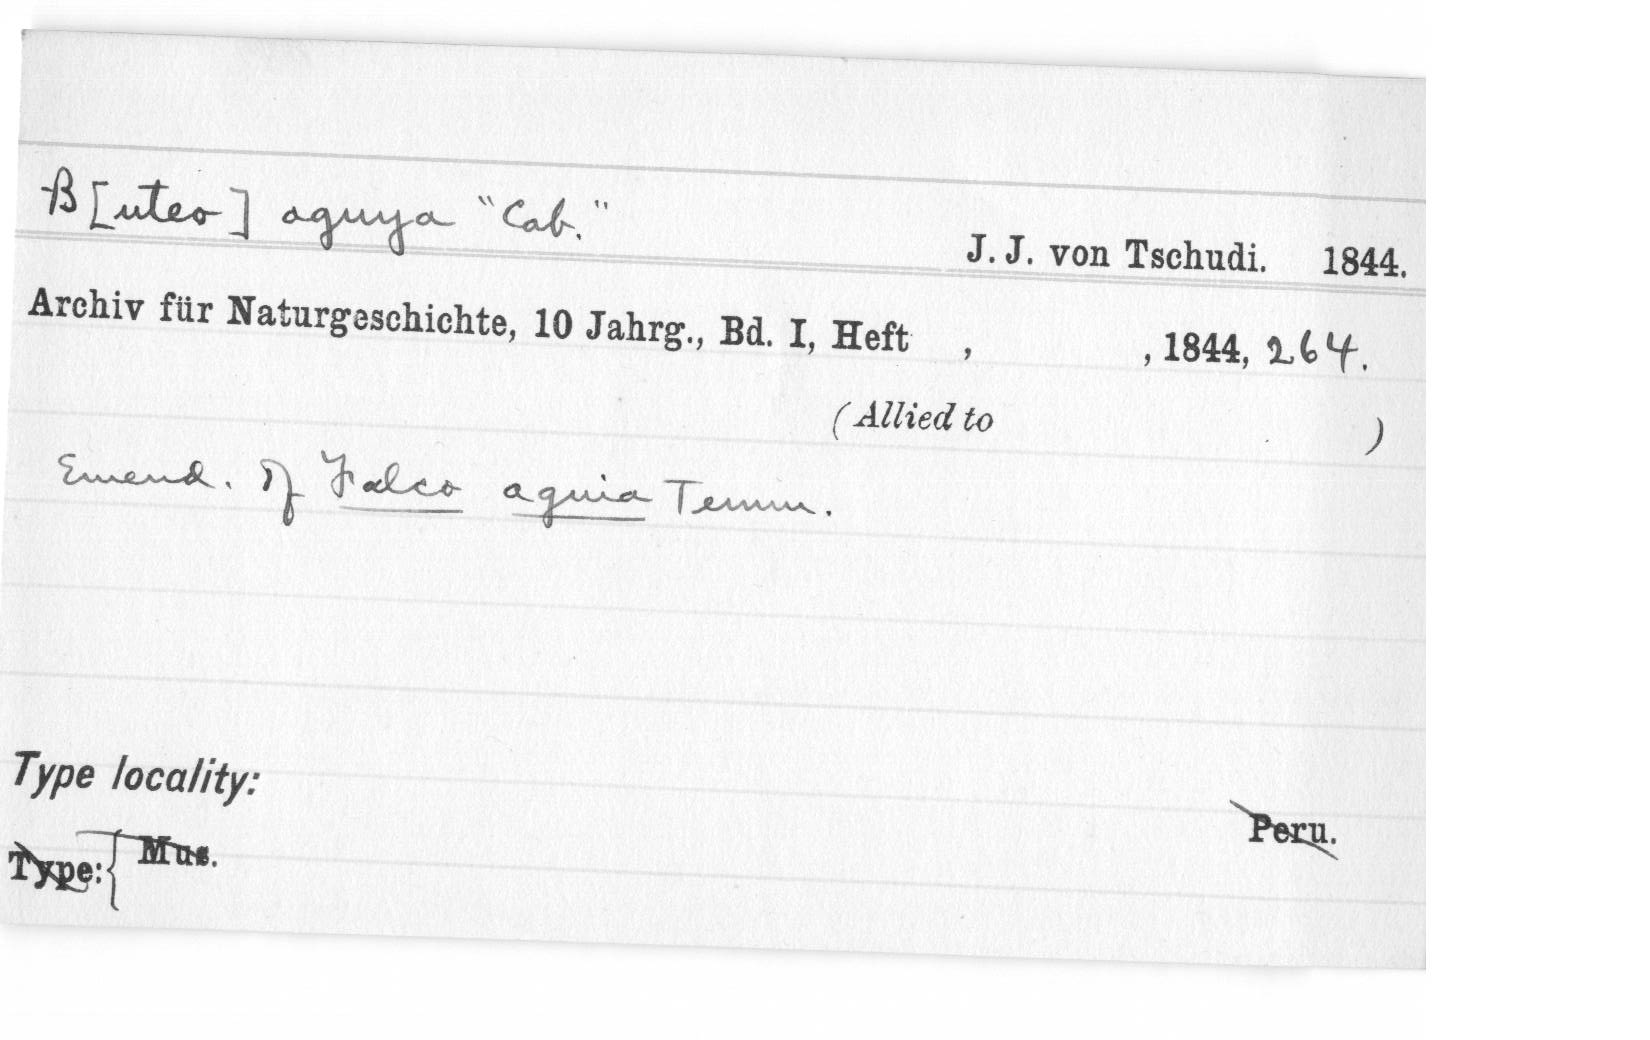 B[uteo] aguya "Cab."
J. J. von Tschudi. 1844.
Archiv für Naturgeschichte, 10 Jahrg., Bd. I, Heft , , 1844, 264.
(Allied to )
Emend. of Falco aguia Temm.
Type locality:
Peru.
Type: { Mus.